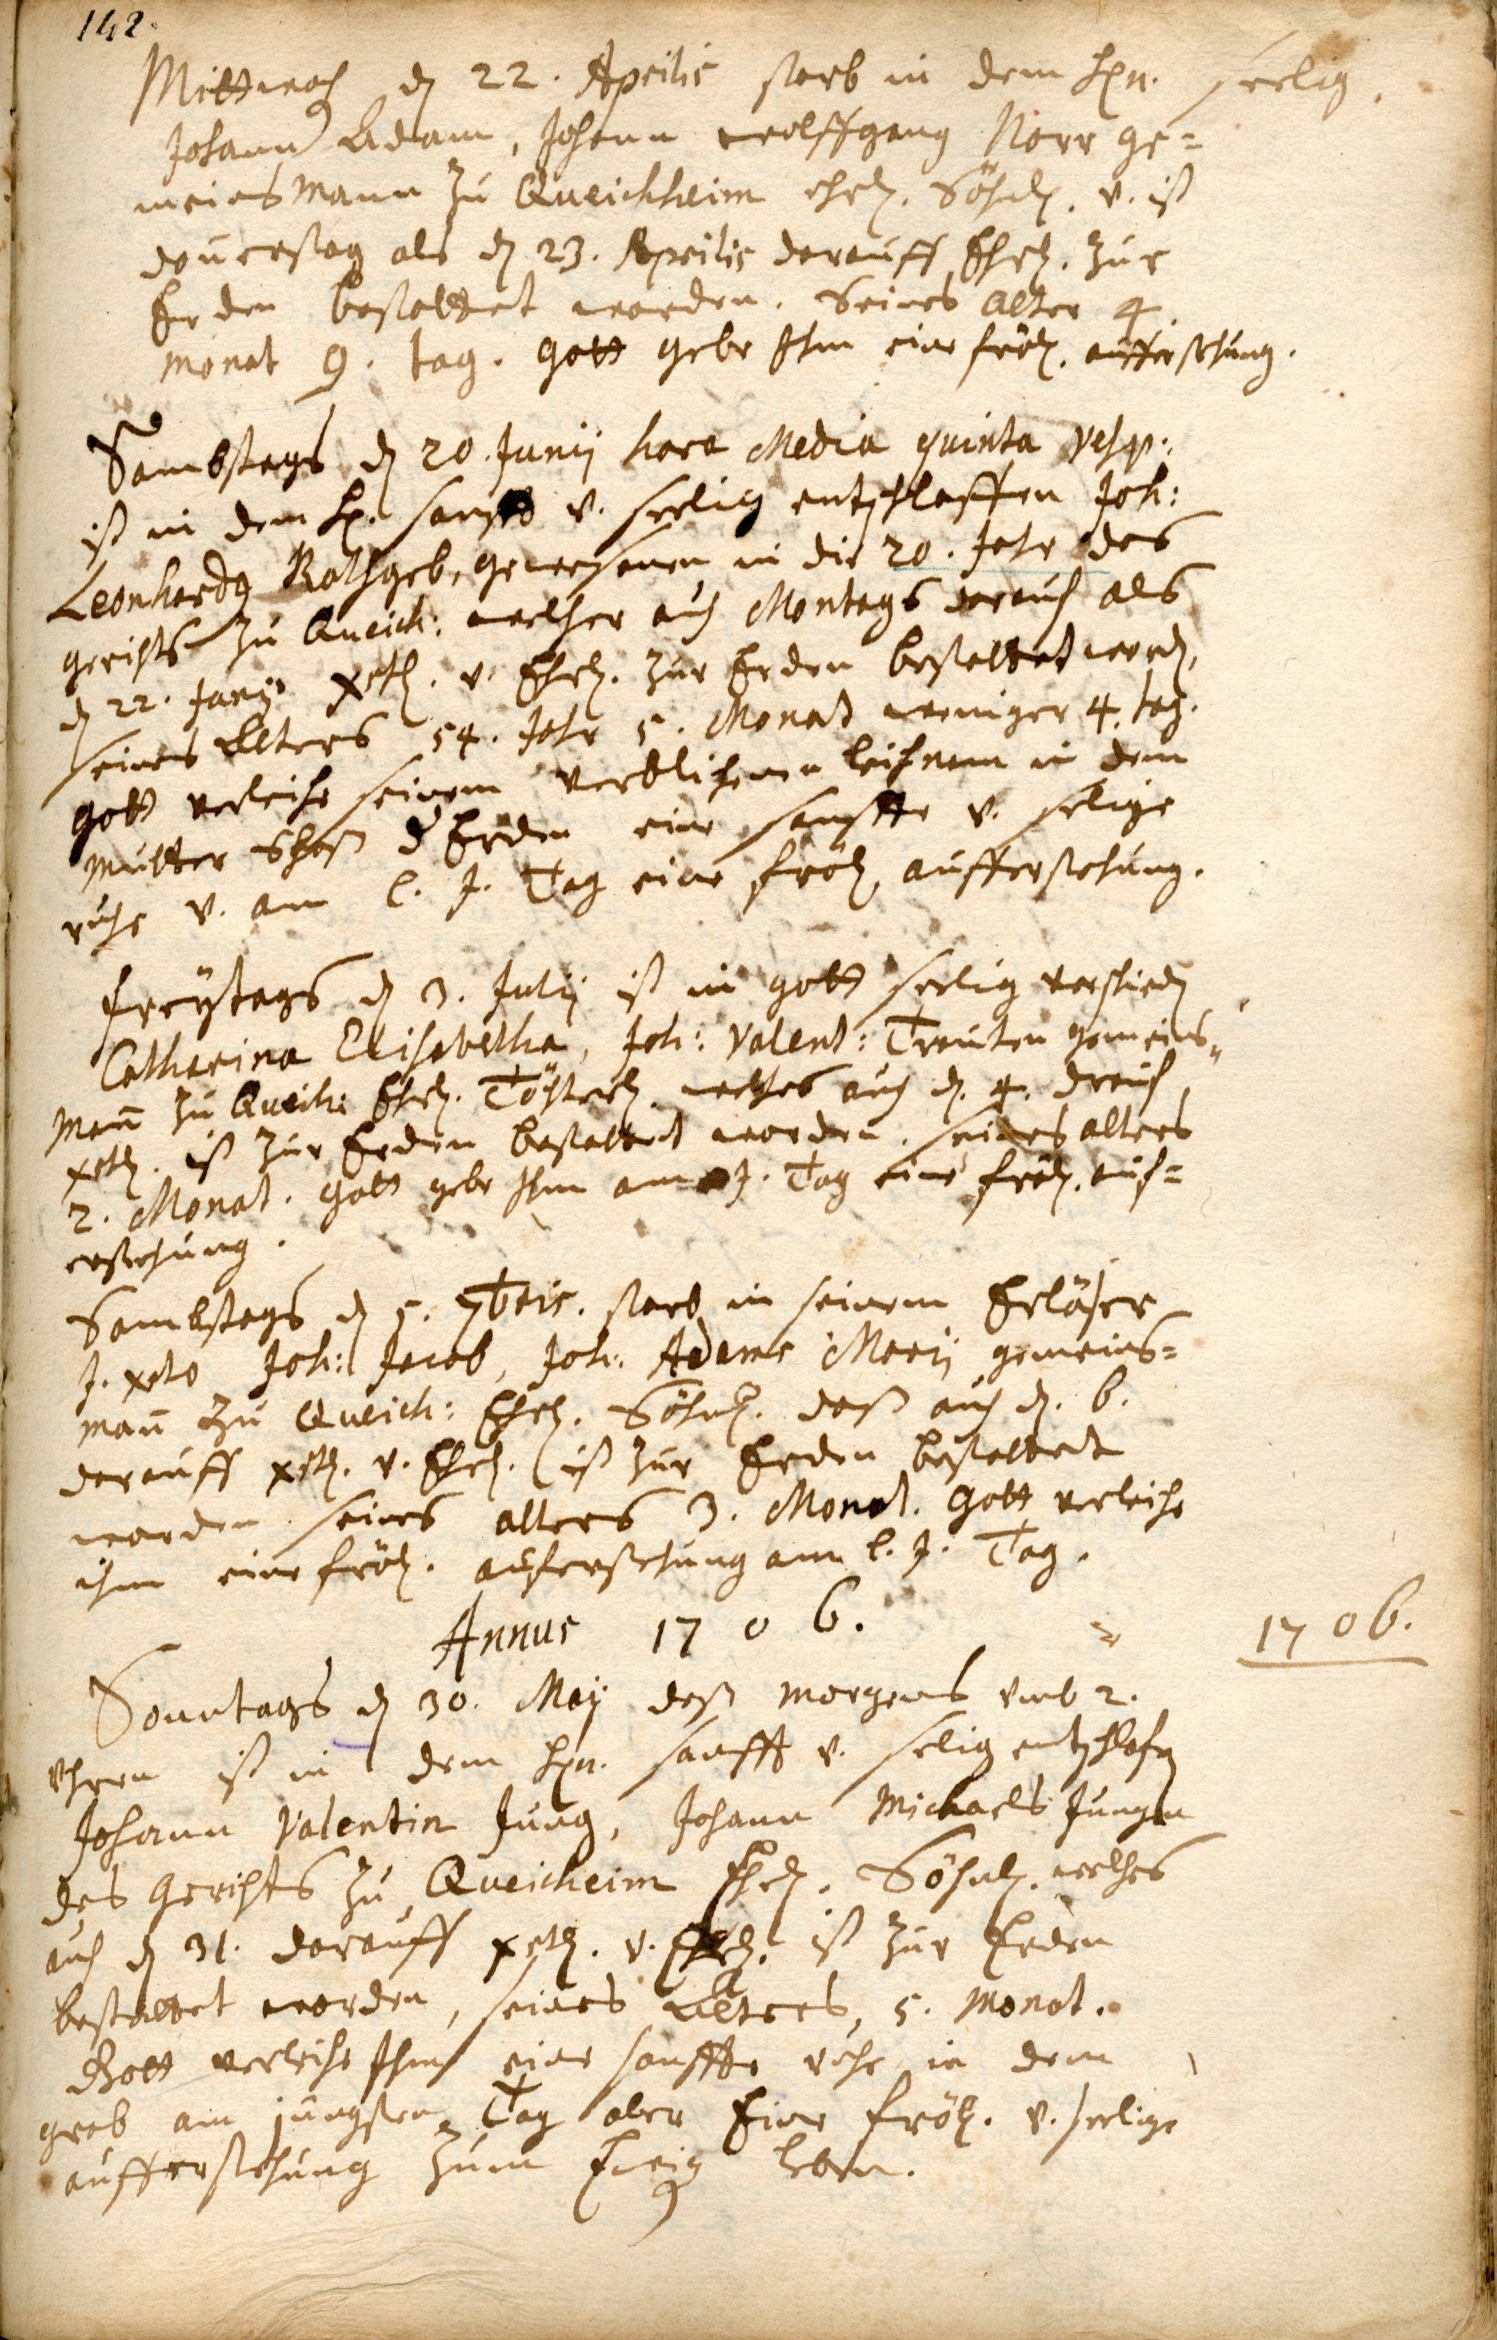 142.
Mittwoch dẽ 22. Aprilis starb in dem Hrn. seelig
Johann Adam, Johann Wolffgang Norr ge=
meins Mann zu Queichheim ehel. Söhnl. v. ist
donerstag als dẽ 23. Aprilis darauff Ehrl. zur
Erden bestattet worden. Seines Alter 4
monat 9. tag. Gott gebe Ihm eine fröl. aufferstehung.
Sambstags dẽ 20. Junij hora Media quinta Vesp:
ist in dem H. sanfft v. seelig entschlaffen Joh:
Leonhardg Rathgeb, gewesenen in die 20. Jahr des
Gerichts zu Queich: welcher auch Montags darauf als
dẽ 22. Junij xstl. v. Ehrl. zur Erden bestattet word.
seines Alters 54. Jahr 5. Monat weniger 4. tag.
Gott verleihe seinem verblichenen leichnam in dem
Mutter Schoß d Erden eine sanffte v. selige
ruhe v. am l. J. Tag eine fröl. aufferstehung.
Freÿtags dẽ 3. Julij ist in Gott seelig verschiedẽ
Catharina Elisabetha, Joh: Valent: Trauten Gemeins=
Mañ zu Queich: Ehel. Töchterl. welches auch dẽ. 4. drauf
xstl. ist zur Erden bestattet worden. seines alters
2. Monat. Gott gebe Ihm am J. Tag eine fröl. auf=
erstehung.
Sambstags dẽ 5. 7bris. starb in seinem Erlöser
J. xsto Joh: Jacob, Joh: Adams Marij gemeins=
mañ zu Queich: Ehel. Söhnl. daß auch dẽ. 6.
darauff xstl. v. Ehrl. ist zur Erden bestattet
worden seines alters 3. Monat. Gott verleihe
ihm eine fröl. auferstehung am l. J. Tag.
Annus 1706.
1706.
Sonntags dẽ 30. Maij deß Morgens vmb 2.
Vhren ist in dem Hrn. sanfft v. selig entschlafẽ
Johann Valentin Jung, Johann Michaels Jungen
des Gerichts zu Queicheim Ehel. Söhnl. welches
auch dẽ 31. darauff xstl. v. Ehrl. ist zur Erden
bestattet worden, seines Alters, 5. Monat.
Gott verleihe Ihm eine sanffte ruhe in dem
grab am jüngsten Tag aber Eine fröl. v. seelige
aufferstehung zum Ewig Leben.